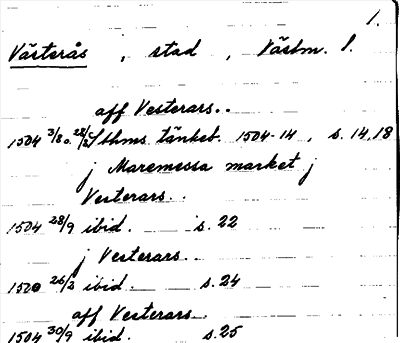 1.
Västerås , stad , Västm. l.
aff Vesterars..
1504 3/8 o. 28/2 Sthms tänkeb. 1504-14 , s. 14, 18
j Maremessa market j
Vesterars..
1504 28/9 ibid. s. 22
j Vesterars..
1520 26/2 ibid. s. 24
aff Vesterars..
1504 30/9 ibid. s. 25